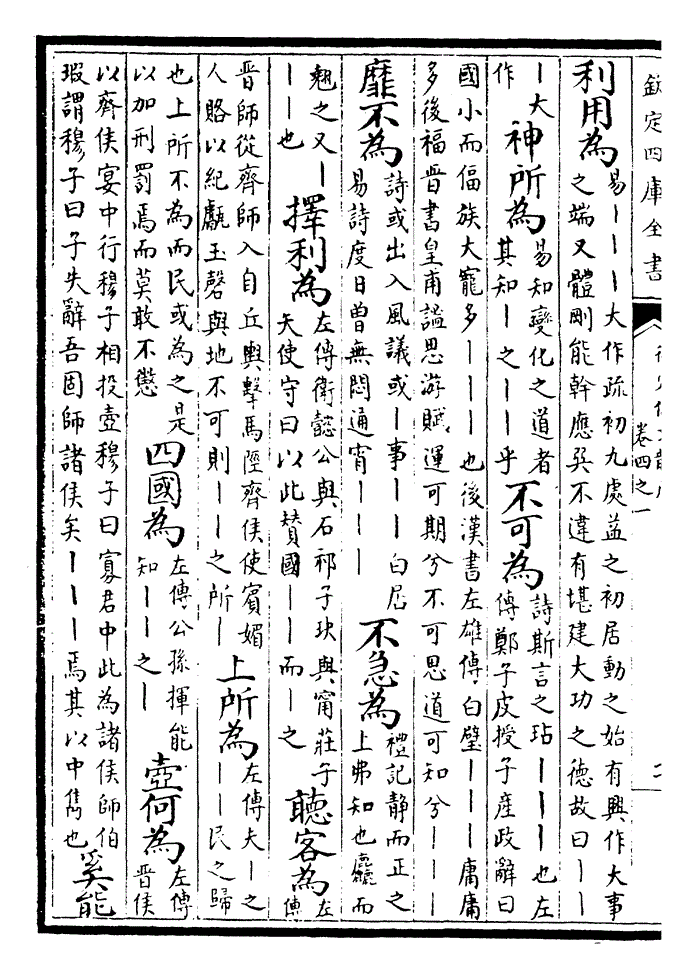 欽定四庫全書
卷四之一
二
利用為
易｜｜｜大作疏初九處益之初居動之始有興作大事
之端又體剛能幹應巽不違有堪建大功之德故曰｜｜
｜大
作
神所為
易知變化之道者
其知｜之｜｜乎
不可為
詩斯言之玷｜｜｜也左
傳鄭子皮授子產政辭曰
國小而偪族大寵多｜｜｜也後漢書左雄傳白璧｜｜｜庸庸
多後福晉書皇甫謐思游賦運可期兮不可思道可知兮｜｜｜
靡不為
詩或出入風議或｜事｜｜白居
易詩度日曾無悶通宵｜｜｜
不急為
禮記靜而正之
上弗知也麤而
翹之又｜
｜｜也
擇利為
左傳衛懿公與石祁子玦與甯莊子
矢使守曰以此贊國｜｜而｜之
聽客為
左
傳
晉師從齊師入自丘輿擊馬陘齊侯使賓媚
人賂以紀甗玉磬與地不可則｜｜之所｜
上所為
左傳夫｜之
｜｜民之歸
也上所不為而民或為之是
以加刑罰焉而莫敢不懲
四國為
左傳公孫揮能
知｜｜之｜
壺何為
左傳
晉侯
以齊侯宴中行穆子相投壺穆子曰寡君中此為諸侯師伯
瑕謂穆子曰子失辭吾固師諸侯矣｜｜｜焉其以中雋也
奚能